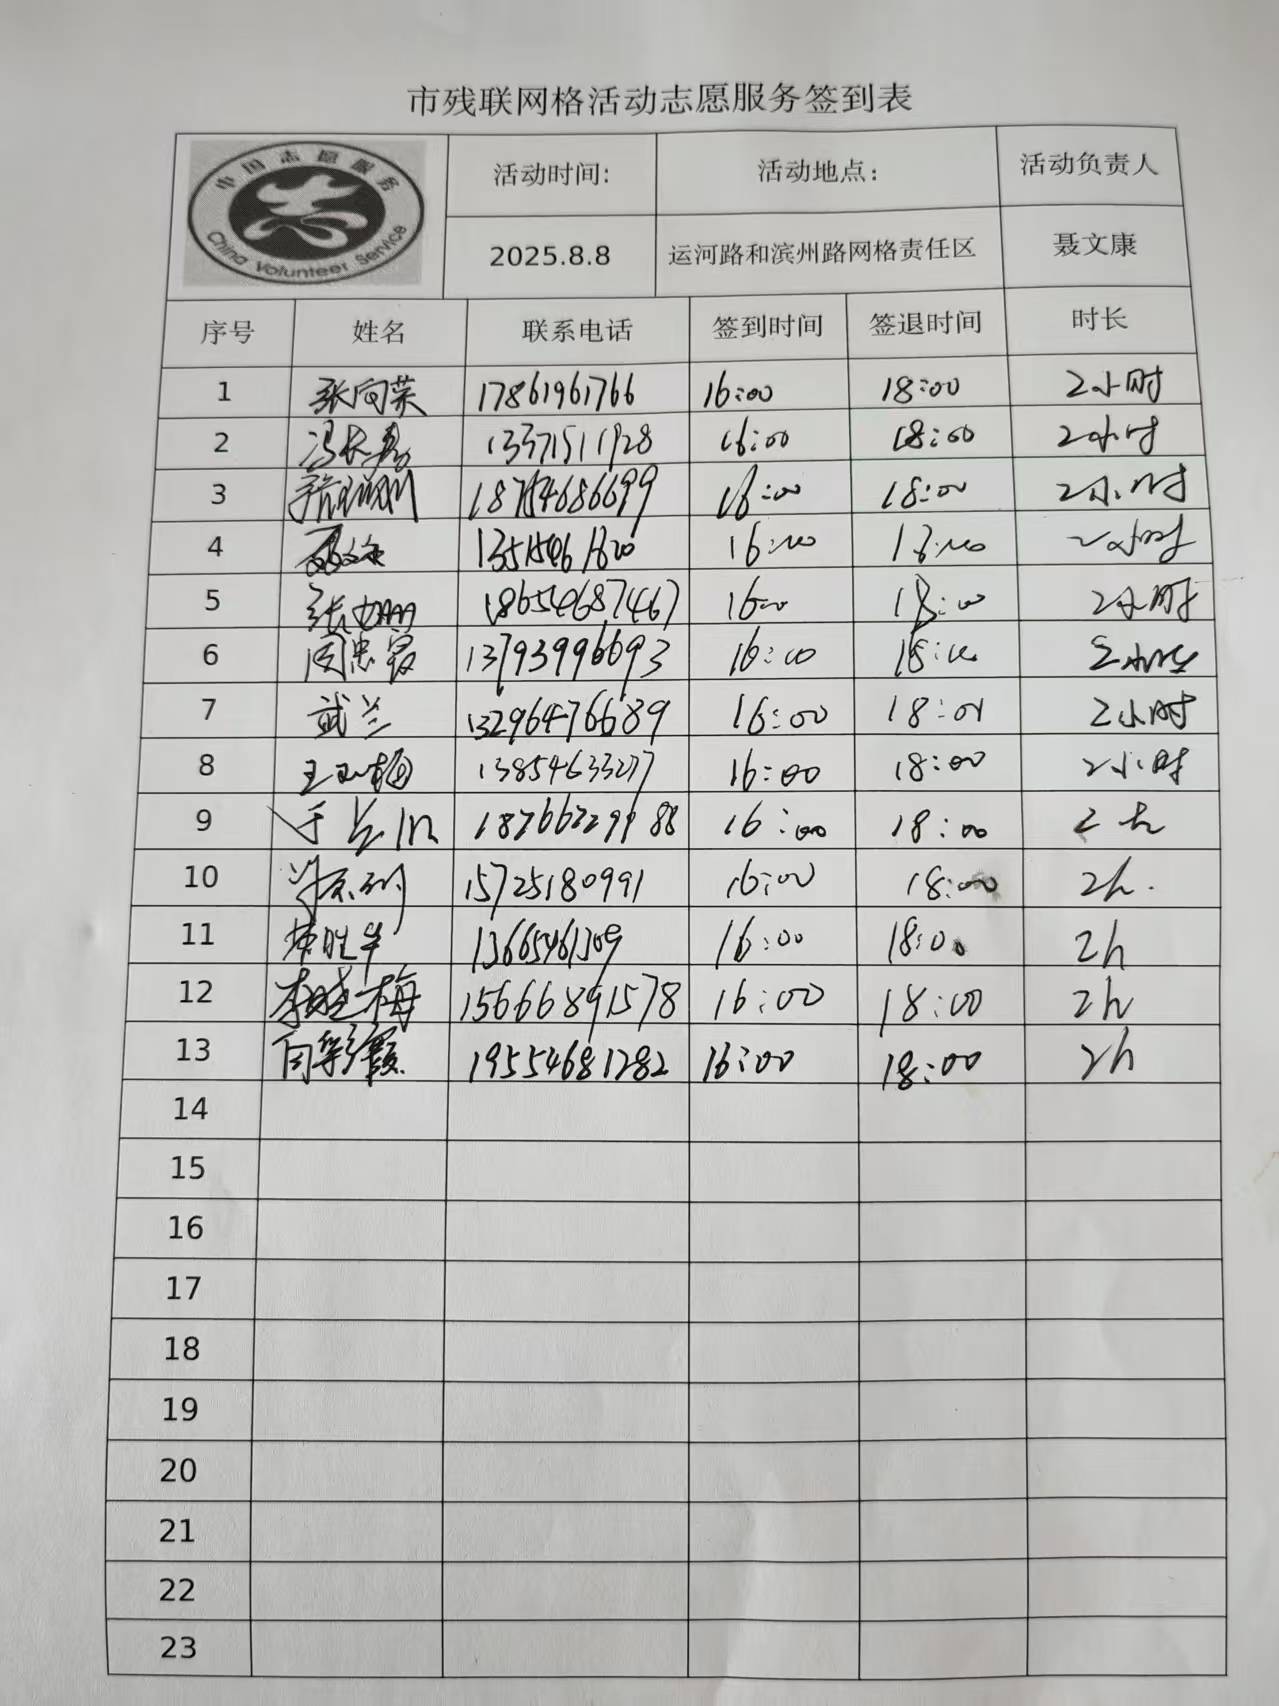 市残联网格活动志愿服务签到表
中国志愿服务
China Volunteer Service
活动时间: 活动地点: 活动负责人
2025.8.8 运河路和滨州路网格责任区 聂文康
序号 姓名 联系电话 签到时间 签退时间 时长
1 张向荣 17861961766 16:00 18:00 2小时
2 13371511928 16:00 18:00 2小时
3 18754686699 16:00 18:00 2小时
4 16:00 18:00 2小时
5 18654687467 16:00 18:00 2小时
6 周忠霞 13793996693 16:00 18:00 2小时
7 武兰 13296476689 16:00 18:01 2小时
8 王玉梅 13854633277 16:00 18:00 2小时
9 18766229988 16:00 18:00 2
10 15725180991 16:00 18:00 2h.
11 16:00 18:00 2h
12 李晓梅 15666891578 16:00 18:00 2h
13 闫彩霞 19554681282 16:00 18:00 2h
14
15
16
17
18
19
20
21
22
23